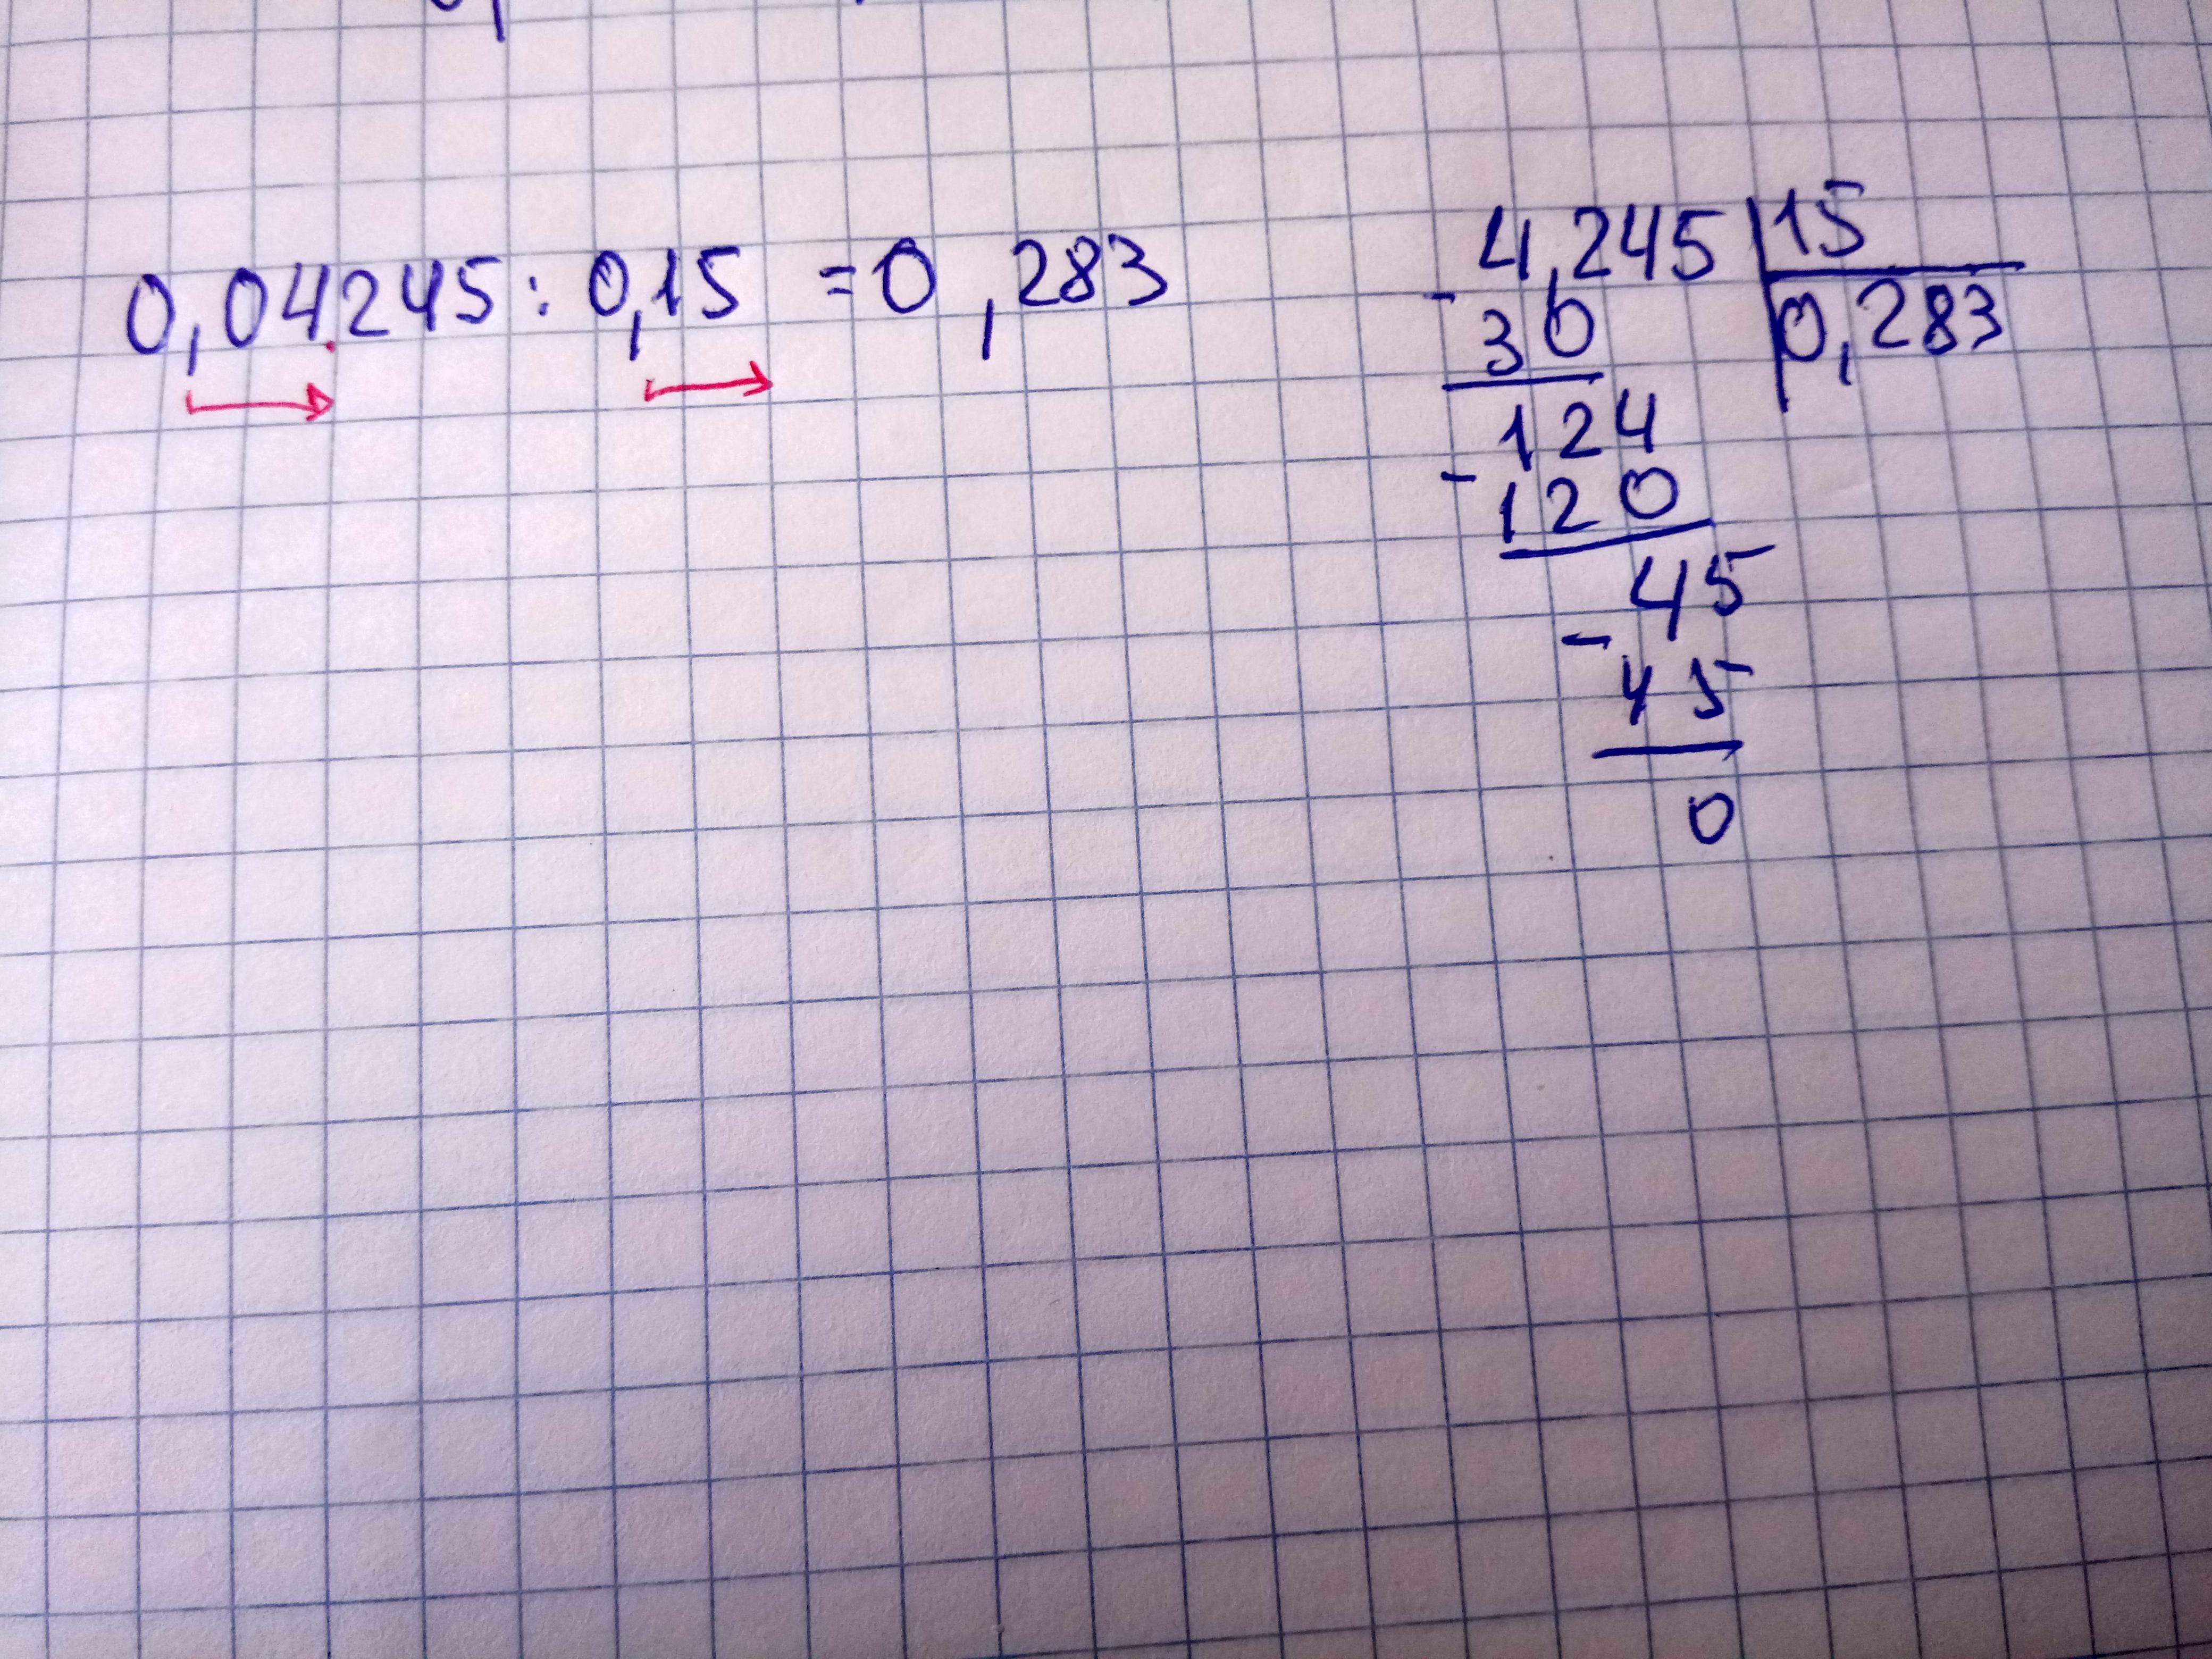 0,04.245 : 0,15 = 0,283
4,245 | 15
- 30 | 0,283
124
- 120
45
- 45
0